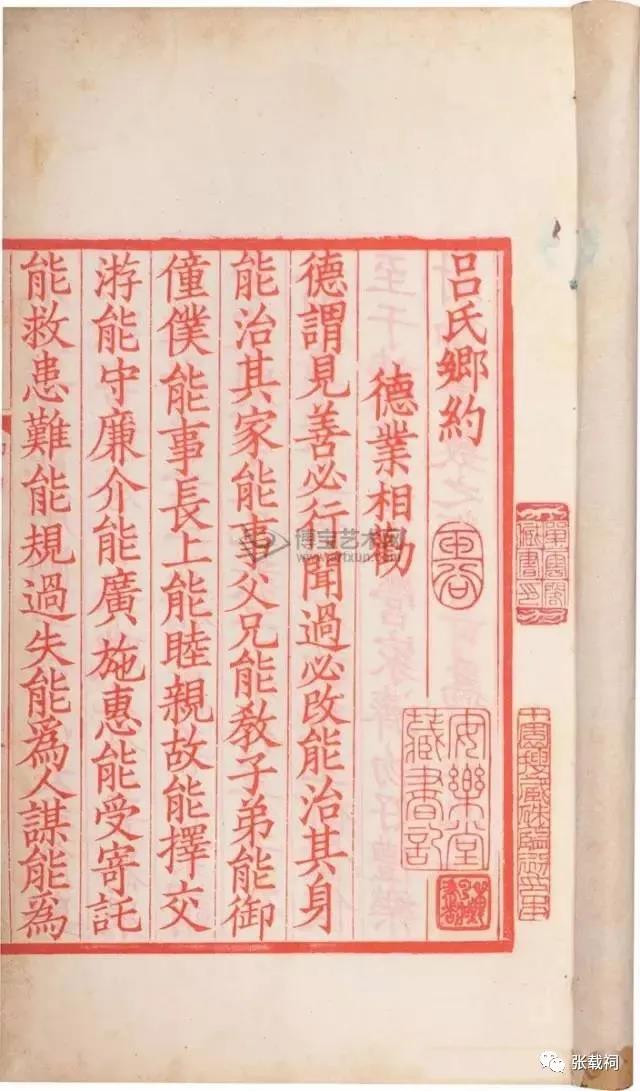 吕氏鄉約
德業相勸
德謂見善必行聞過必改能治其身
能治其家能事父兄能教子弟能御
僮僕能事長上能睦親故能擇交
游能守廉介能廣施惠能受寄託
能救患難能規過失能為人謀能為
安樂堂
藏書記
博宝艺术网
www.artxun.com
张载祠